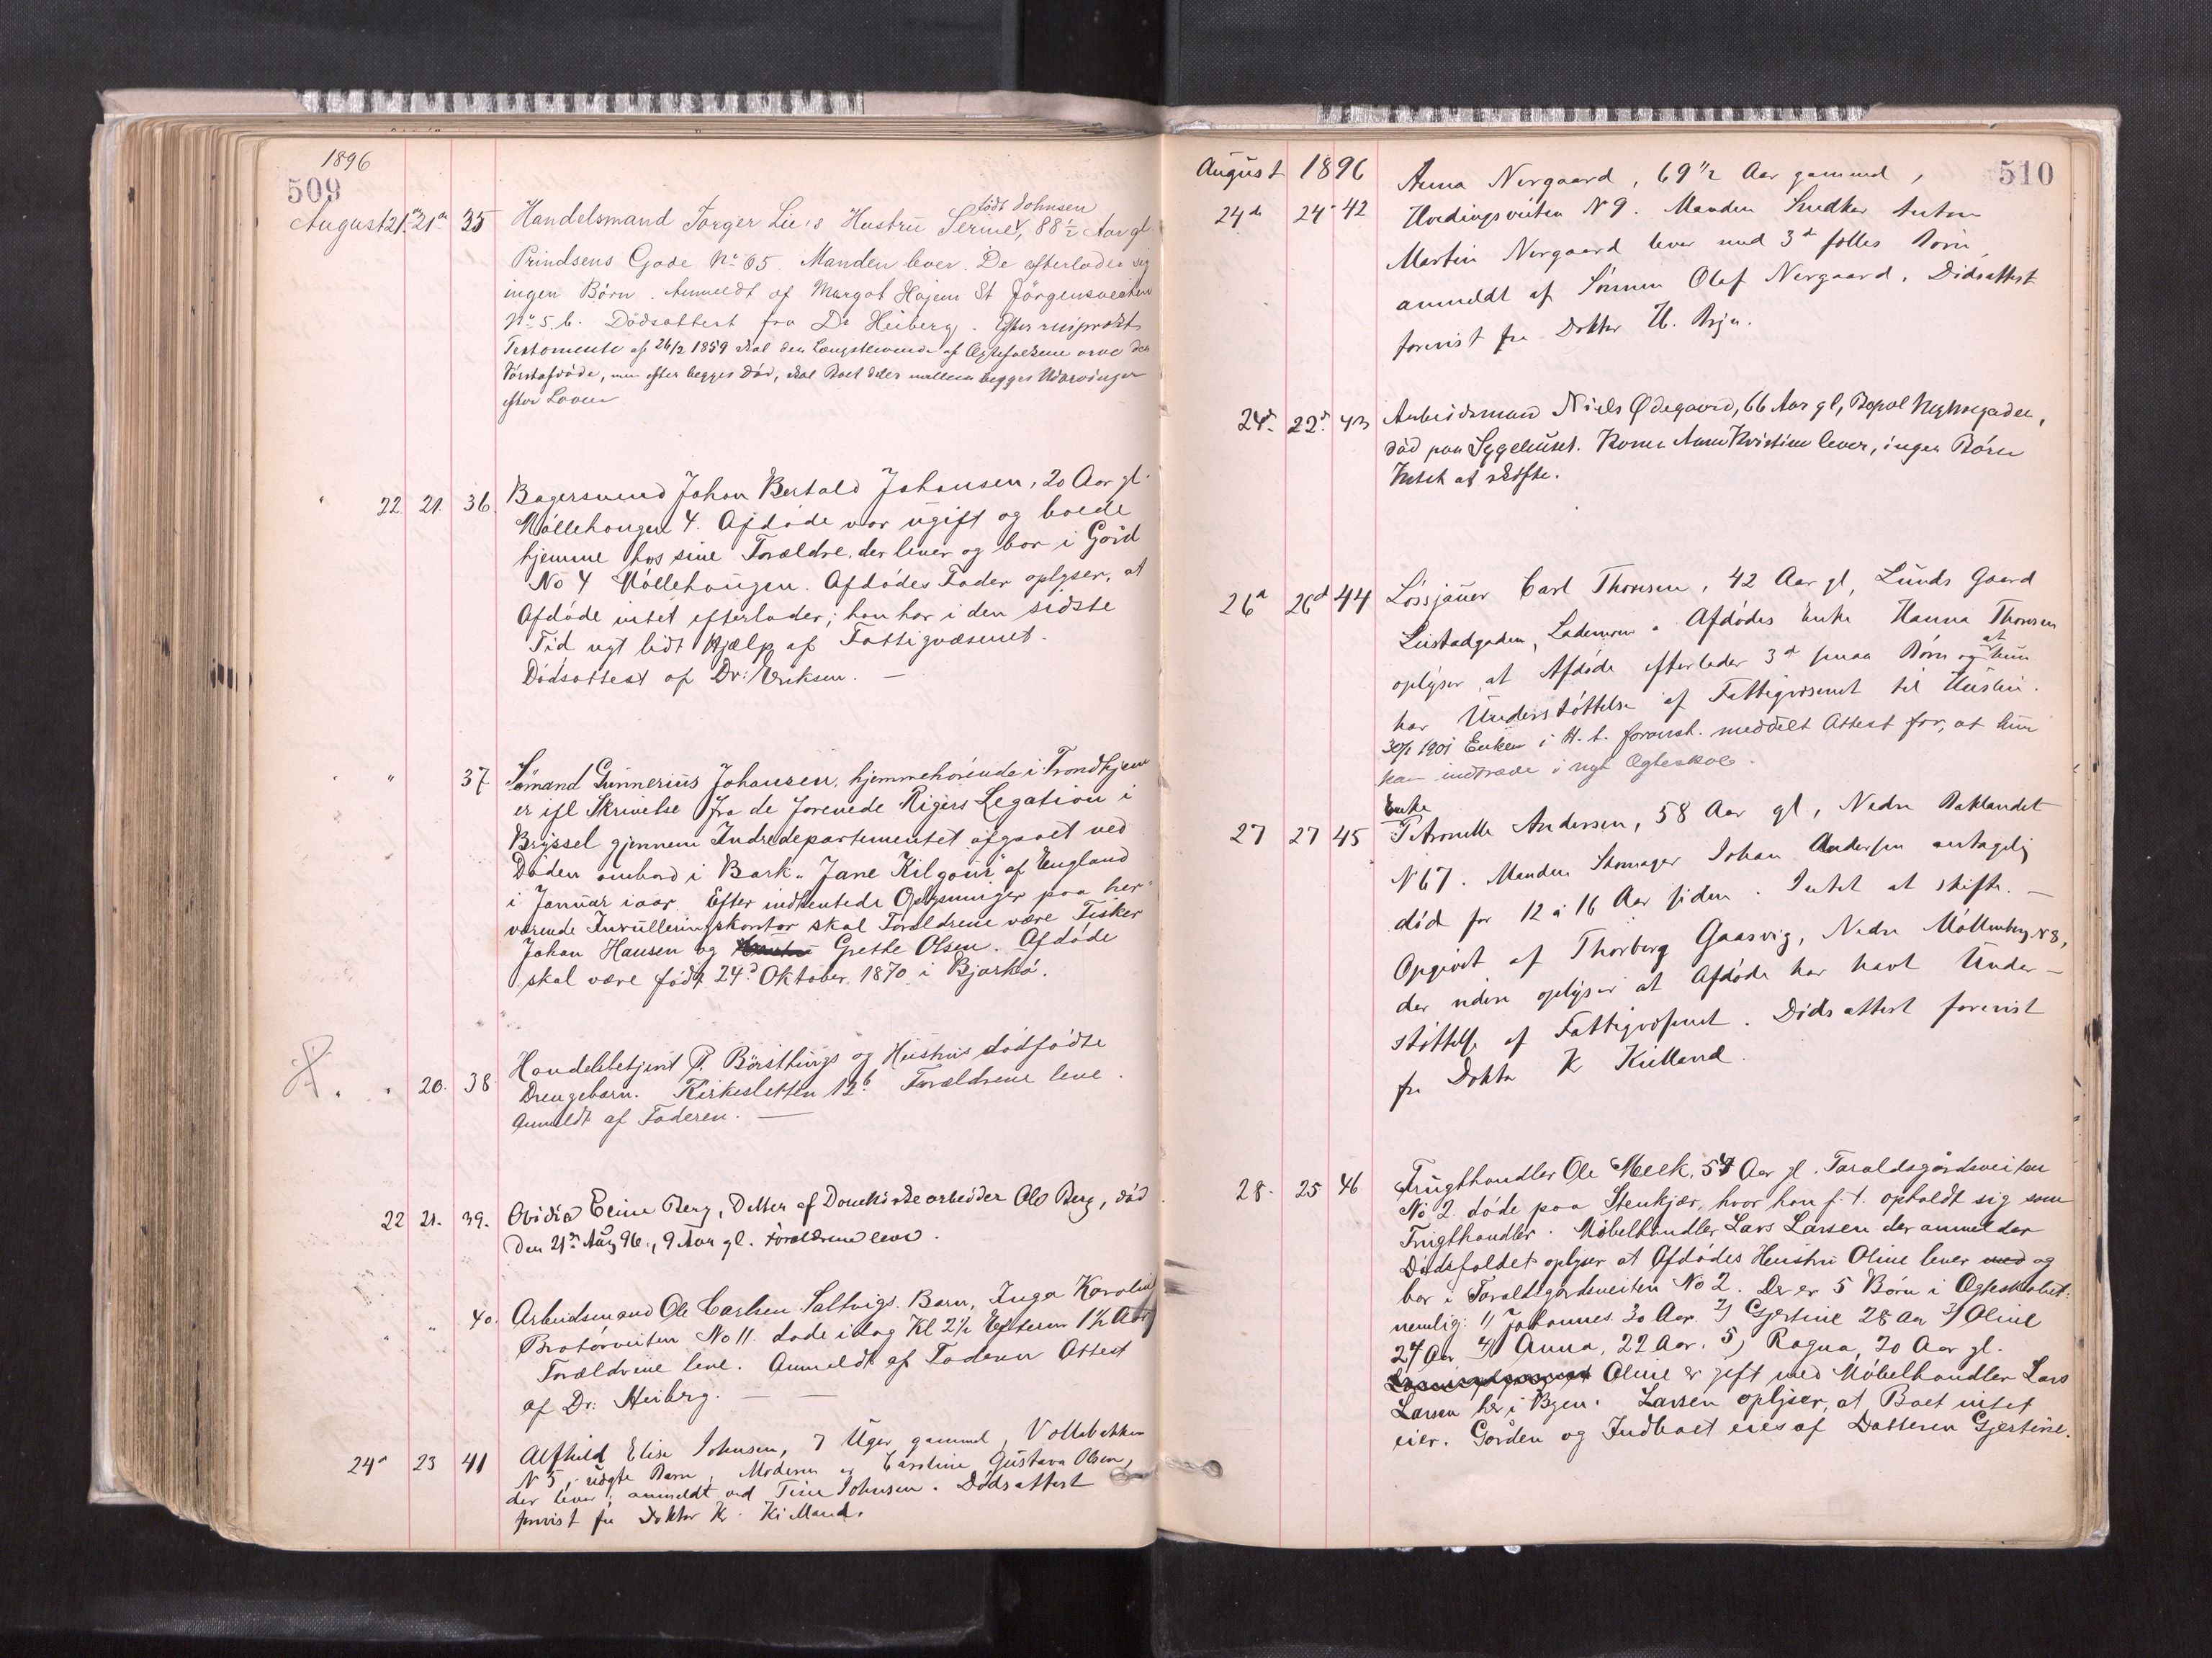 1896
509
August 21de 21de 35 Handelsmand Torger Lie's Hustru Serine, født Johnsen, 88½ Aar gl
Prindsens Gade No 65. Manden lever. De efterlader sig
ingen Børn. Anmeldt af Margot Højem St Jørgensveiten
No 5 b. Dødsattest fra Dr Heiberg. Efter reciprokt
Testamente af 26/2 1859 skal den Længstlevende af Ægtefolkene arve den
Førstafdøde, men efter begges Død, skal Boet deles mellem begges Udarvinger
efter Loven
22 21. 36. Bagersvend Johan Bertold Johansen, 20 Aar gl.
Møllehaugen 4. Afdøde var ugift og boede
hjemme hos sine Forældre, der lever og bor i Gård
No 4 Møllehaugen. Afdødes Fader oplyser, at
Afdøde intet efterlader; han har i den sidste
Tid nyt lidt Hjælp af Fattigvæsenet.
Dødsattest af Dr: Eriksen. —
" 37 Sømand Gunnerius Johansen, hjemmehørende i Trondhjem
er ifl Skrivelse fra de forenede Rigers Legation i
Bryssel gjennem Indredepartementet afgaaet ved
Døden ombord i Bark "Jane Kilgour" af England
i Januar iaar. Efter indhentede Oplysninger paa her-
værende Inrulleringskontor skal Forældrene være Fisker
Johan Hansen og Grethe Olsen. Afdøde
skal være født 24d Oktober 1870 i Bjarkø.
" 20. 38 Handelsbetjent P. Børsthings og Hustrus dødfødte
Drengebarn. Kirkesletten 12b Forældrene leve.
Anmeldt af Faderen. —
22 21. 39. Ovidia Eline Berg, Datter af Domkirkearbeider Ole Berg, død
den 21de Aug 96, 9 Aar gl. Forældrene leve.
" " 40. Arbeidsmand Ole Carlsen Saltvigs Barn, Inga Karoline
Bratørveiten No 11. døde idag Kl 2½ Efterm 1½ Aar
Forældrene leve. Anmeldt af Faderen Attest
af Dr: Heiberg. — —
24de 23 41 Alfhild Elise Johnsen, 7 Uger gammel, Vollabakken
N 5, uægte Barn, Moderen er Caroline Gustava Olsen,
der lever; anmeldt ved Tine Johnsen. Dødsattest
forevist fra Doktor K. Kielland.
August 1896
510
Anna Nergaard, 69½ Aar gammel,
24de 24de 42 Hvedingsveiten N 9. Manden Snedker Anton
Martin Nergaard lever med 3de fælles Børn
anmeldt af Sønnen Olaf Nergaard. Dødsattest
forevist fra Doktor H.
24de 22de 43 Arbeidsmand Niels Ødegaard, 66 Aar gl, Bopæl Nyhusgaden,
død paa Sygehuset. Konen Anne Kristine lever, ingen Børn
Intet at skifte.
26de 26de 44 Løssjauer Carl Thoresen, 42 Aar gl, Lunds Gaard
Listadgaden, Lademoen. Afdødes Enke Hanna Thoresen
oplyser, at Afdøde efterlader 3de smaa Børn og at hun
har Understøttelse af Fattigvæsenet til Husleie.
30/1 1901 Enken i H. t. foranst. meddelt Attest for, at hun
kan indtræde i nyt Ægteskab.
Enke
27 27 45 Petronelle Andersen, 58 Aar gl, Nedre Baklandet
N 67. Manden Skomager Johan Andersen antagelig
død for 12 à 16 Aar siden. Intet at skifte. —
Opgivet af Thorberg Gaasvig, Nedre Møllenberg N 8,
der videre oplyser at Afdøde har havt Under-
støttelse af Fattigvæsenet. Dødsattest forevist
fra Doktor K Kielland.
28. 25 46 Frugthandler Ole Meek, 54 Aar gl. Taraldsgårdsveiten
No 2 døde paa Stenkjær, hvor han f. t. opholdt sig som
Frugthandler. Møbelhandler Lars Larsen der anmelder
Dødsfaldet oplyser at Afdødes Hustru Oline lever med og
bor i Taraldsgårdsveiten No 2. Der er 5 Børn i Ægteskabet:
nemlig: 1) Johannes 30 Aar. 2) Gjertine 28 Aar 3) Oline
24 Aar 4) Anna, 22 Aar. 5) Ragna, 20 Aar gl.
Oline er gift med Møbelhandler Lars
Larsen her i Byen. Larsen oplyser, at Boet intet
eier. Gården og Indboet eies af Datteren Gjertine.